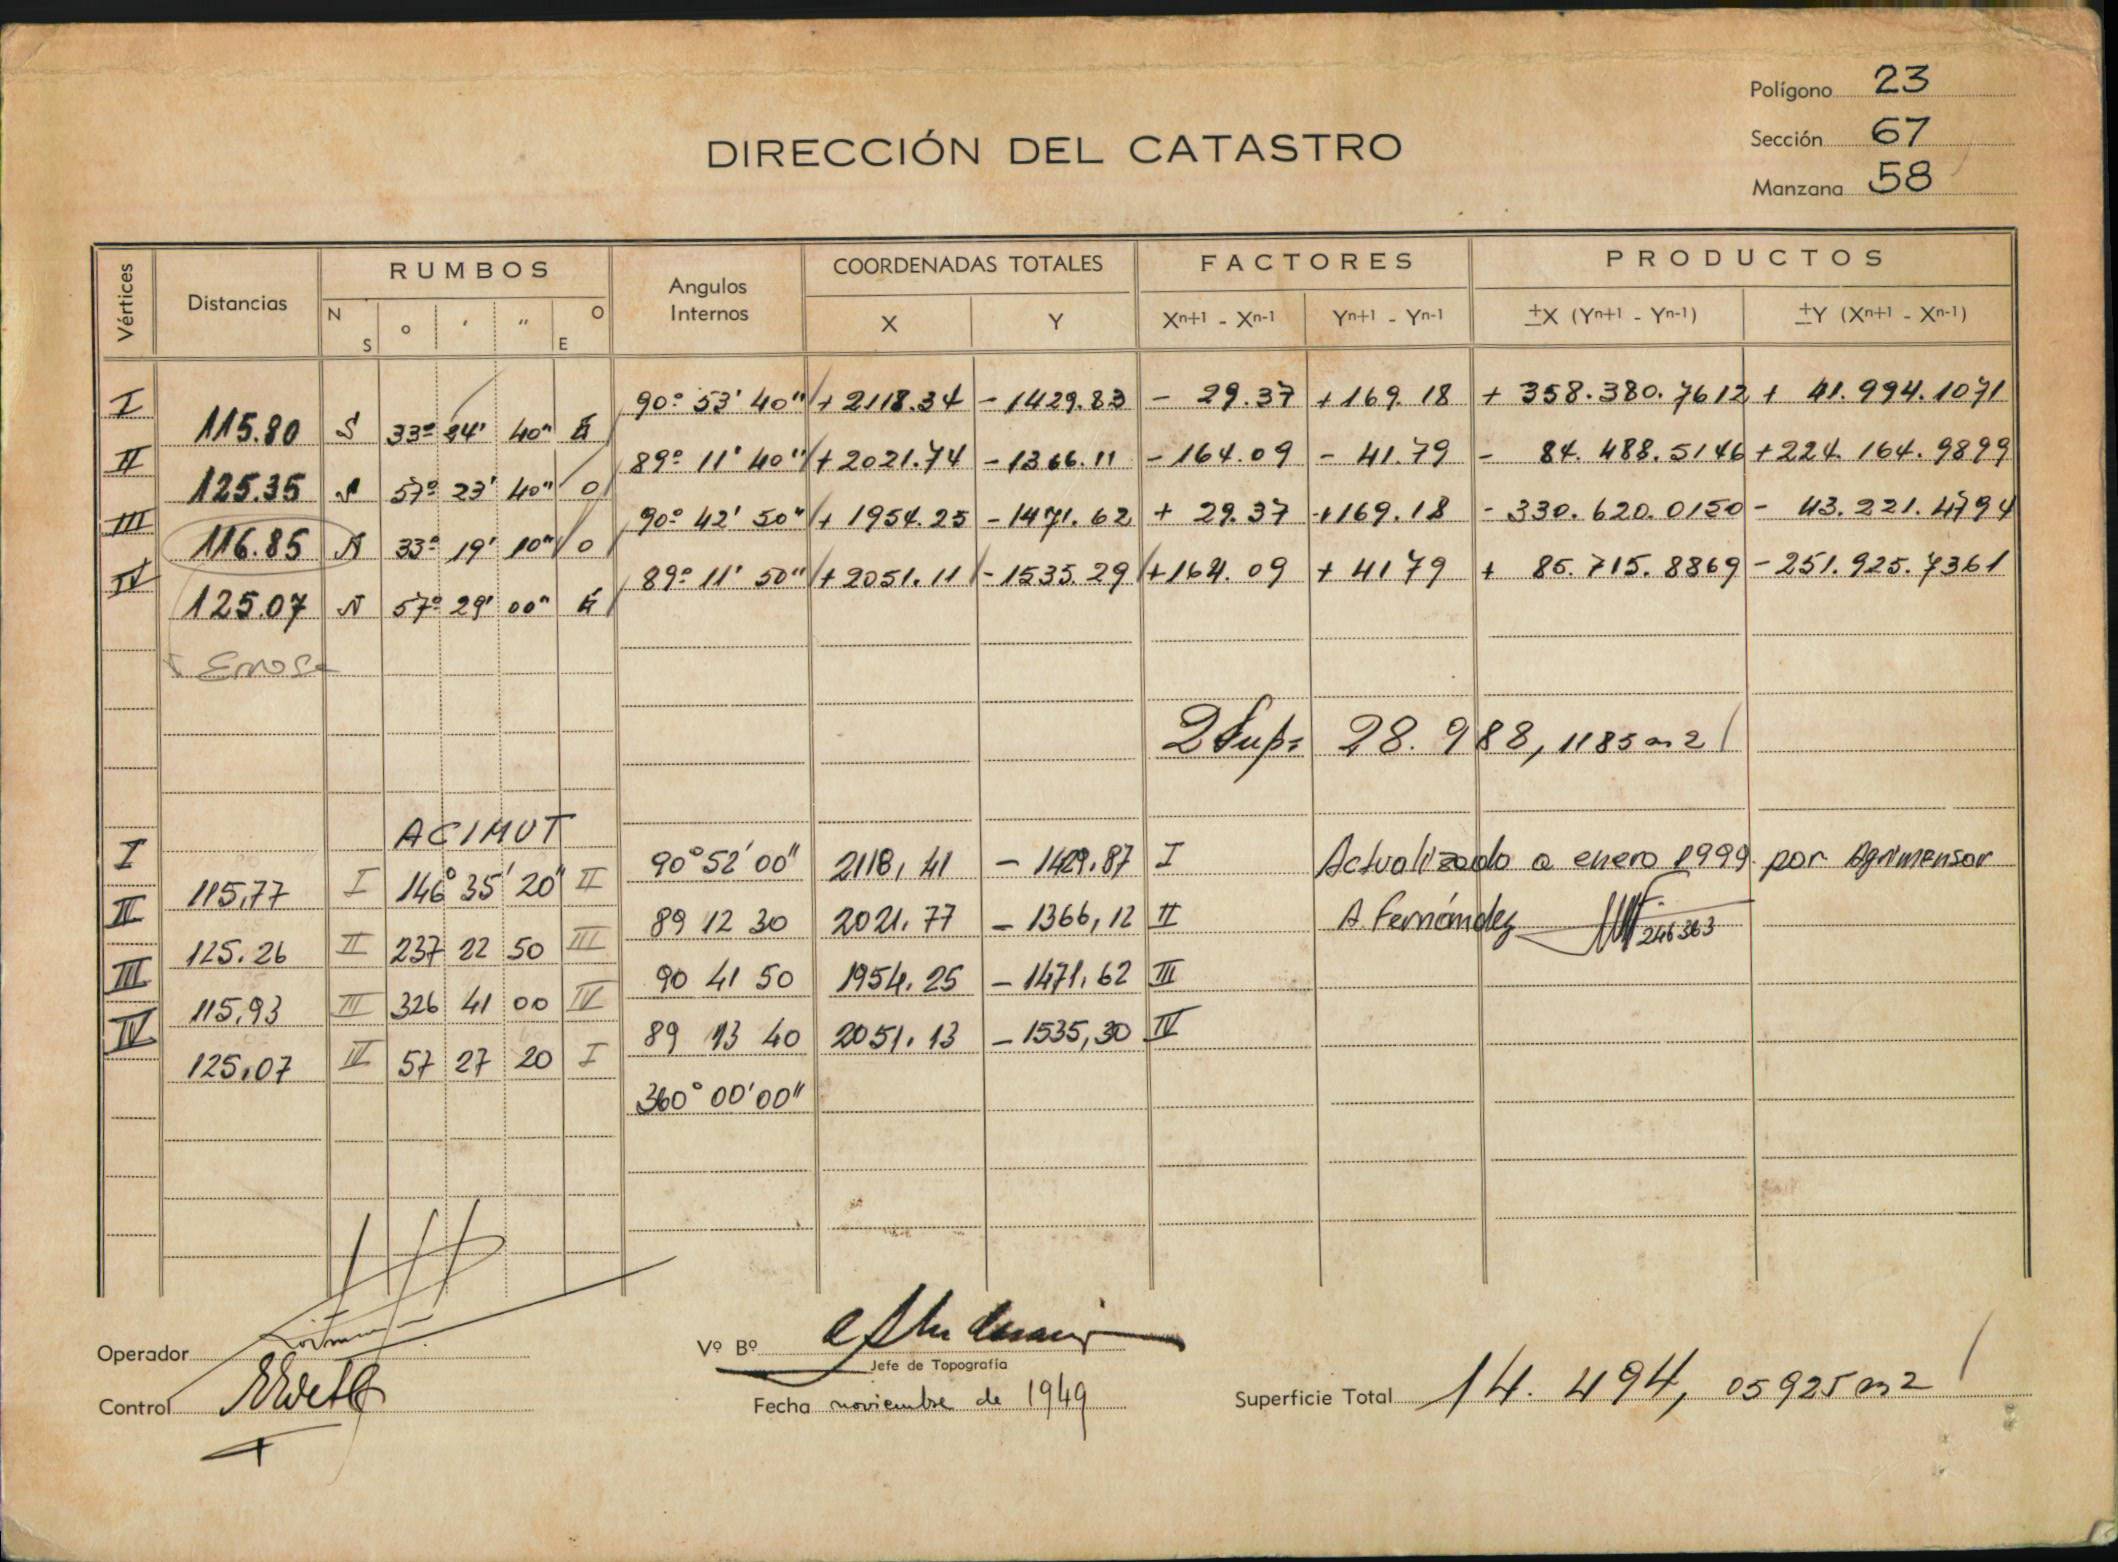 Polígono 23
DIRECCIÓN DEL CATASTRO
Sección 67
Manzana 58
Vértices Distancias RUMBOS Angulos Internos COORDENADAS TOTALES FACTORES PRODUCTOS
N S o ' " O E X Y Xn+1 - Xn-1 Yn+1 - Yn-1 ±X (Yn+1 - Yn-1) ±Y (Xn+1 - Xn-1)
I 90º 53' 40" + 2118.34 - 1429.83 - 29.37 + 169.18 + 358.380.7612 + 41.994.1071
115.80 S 33º 24' 40" E
II 89º 11' 40" + 2021.74 - 1366.11 - 164.09 - 41.79 - 84.488.5146 + 224.164.9899
125.35 S 57º 23' 40" O
III 90º 42' 50" + 1954.25 - 1471.62 + 29.37 +169.18 - 330.620.0150 - 43.221.4794
116.85 N 33º 19' 10" O
IV 89º 11' 50" + 2051.11 - 1535.29 + 164.09 + 4179 + 85.715.8869 - 251.925.7361
125.07 N 57º 29' 00" E
2 Sup= 28.988,1185 m2
ACIMUT
I 90° 52' 00" 2118,41 - 1429.87 I Actualizado a enero 1999 por Agrimensor
115,77 I 146° 35' 20" II
II 89 12 30 2021.77 - 1366,12 II A. Fernández 246363
125.26 II 237 22 50 III
III 90 41 50 1954.25 - 1471,62 III
115,93 III 326 41 00 IV
IV 89 13 40 2051.13 - 1535,30 IV
125,07 IV 57 27 20 I
360° 00' 00"
Operador
Vº Bº
Jefe de Topografía
Control
Fecha noviembre de 1949
Superficie Total 14.494,05925 m2